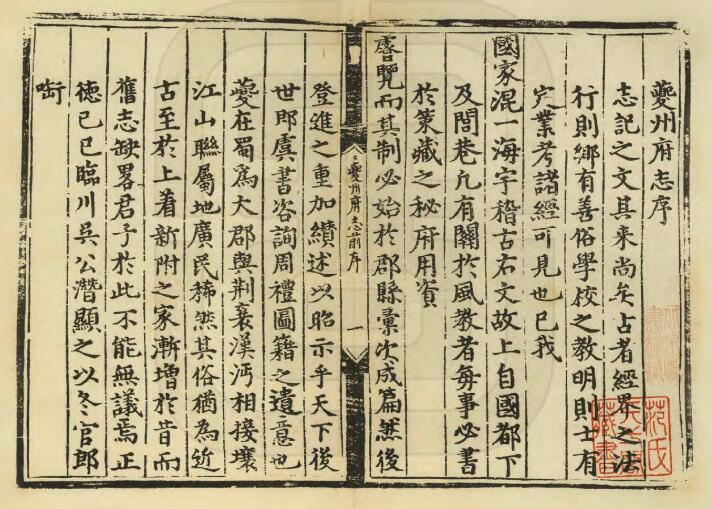 夔州府志序
志記之文其来尚矣占者經界之法
行則鄉有善俗學校之教明則士有
定業考諸經可見也已我
國家混一海宇稽古右文故上自國都下
及閭巷凡有關於風教者每事必書
於策藏之秘府用資
睿覽而其制必始於郡縣彙次成篇然後
夔州府志前序
一
登進之重加纘述以昭示乎天下後
世即虞書咨詢周禮圖籍之遺意也
夔在蜀爲大郡與荆襄漢沔相接壤
江山聯屬地廣民稀然其俗猶為近
古至於上着新附之家漸增於昔而
舊志缺畧君子於此不能無議焉正
徳己巳臨川吳公潛顯之以冬官郎
范氏
藏書